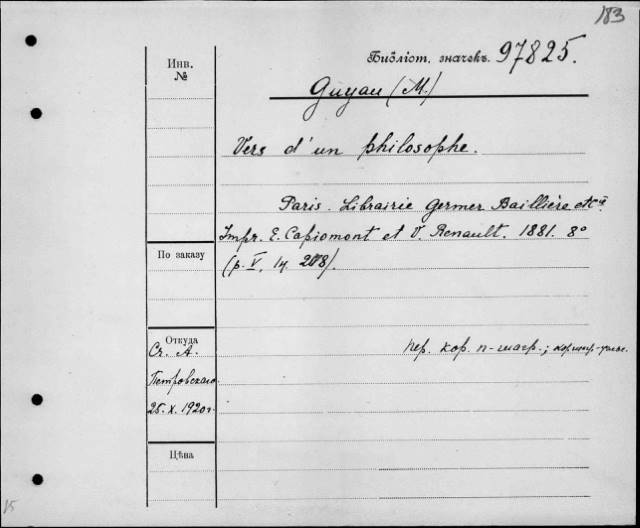 183
Библіот. значекъ. 97825.
Инв.
№
Guyau (M.)
Vers d'un philosophe.
Paris. Librairie Germer Baillière et Cie.
Impr. E. Capiomont et V. Renault. 1881. 8°
(p. V, 14, 208).
По заказу
Откуда
Ст. А.
Петровскаго
25. X. 1920 г.
Пер. кор. п-шагр.;
Цѣна
15